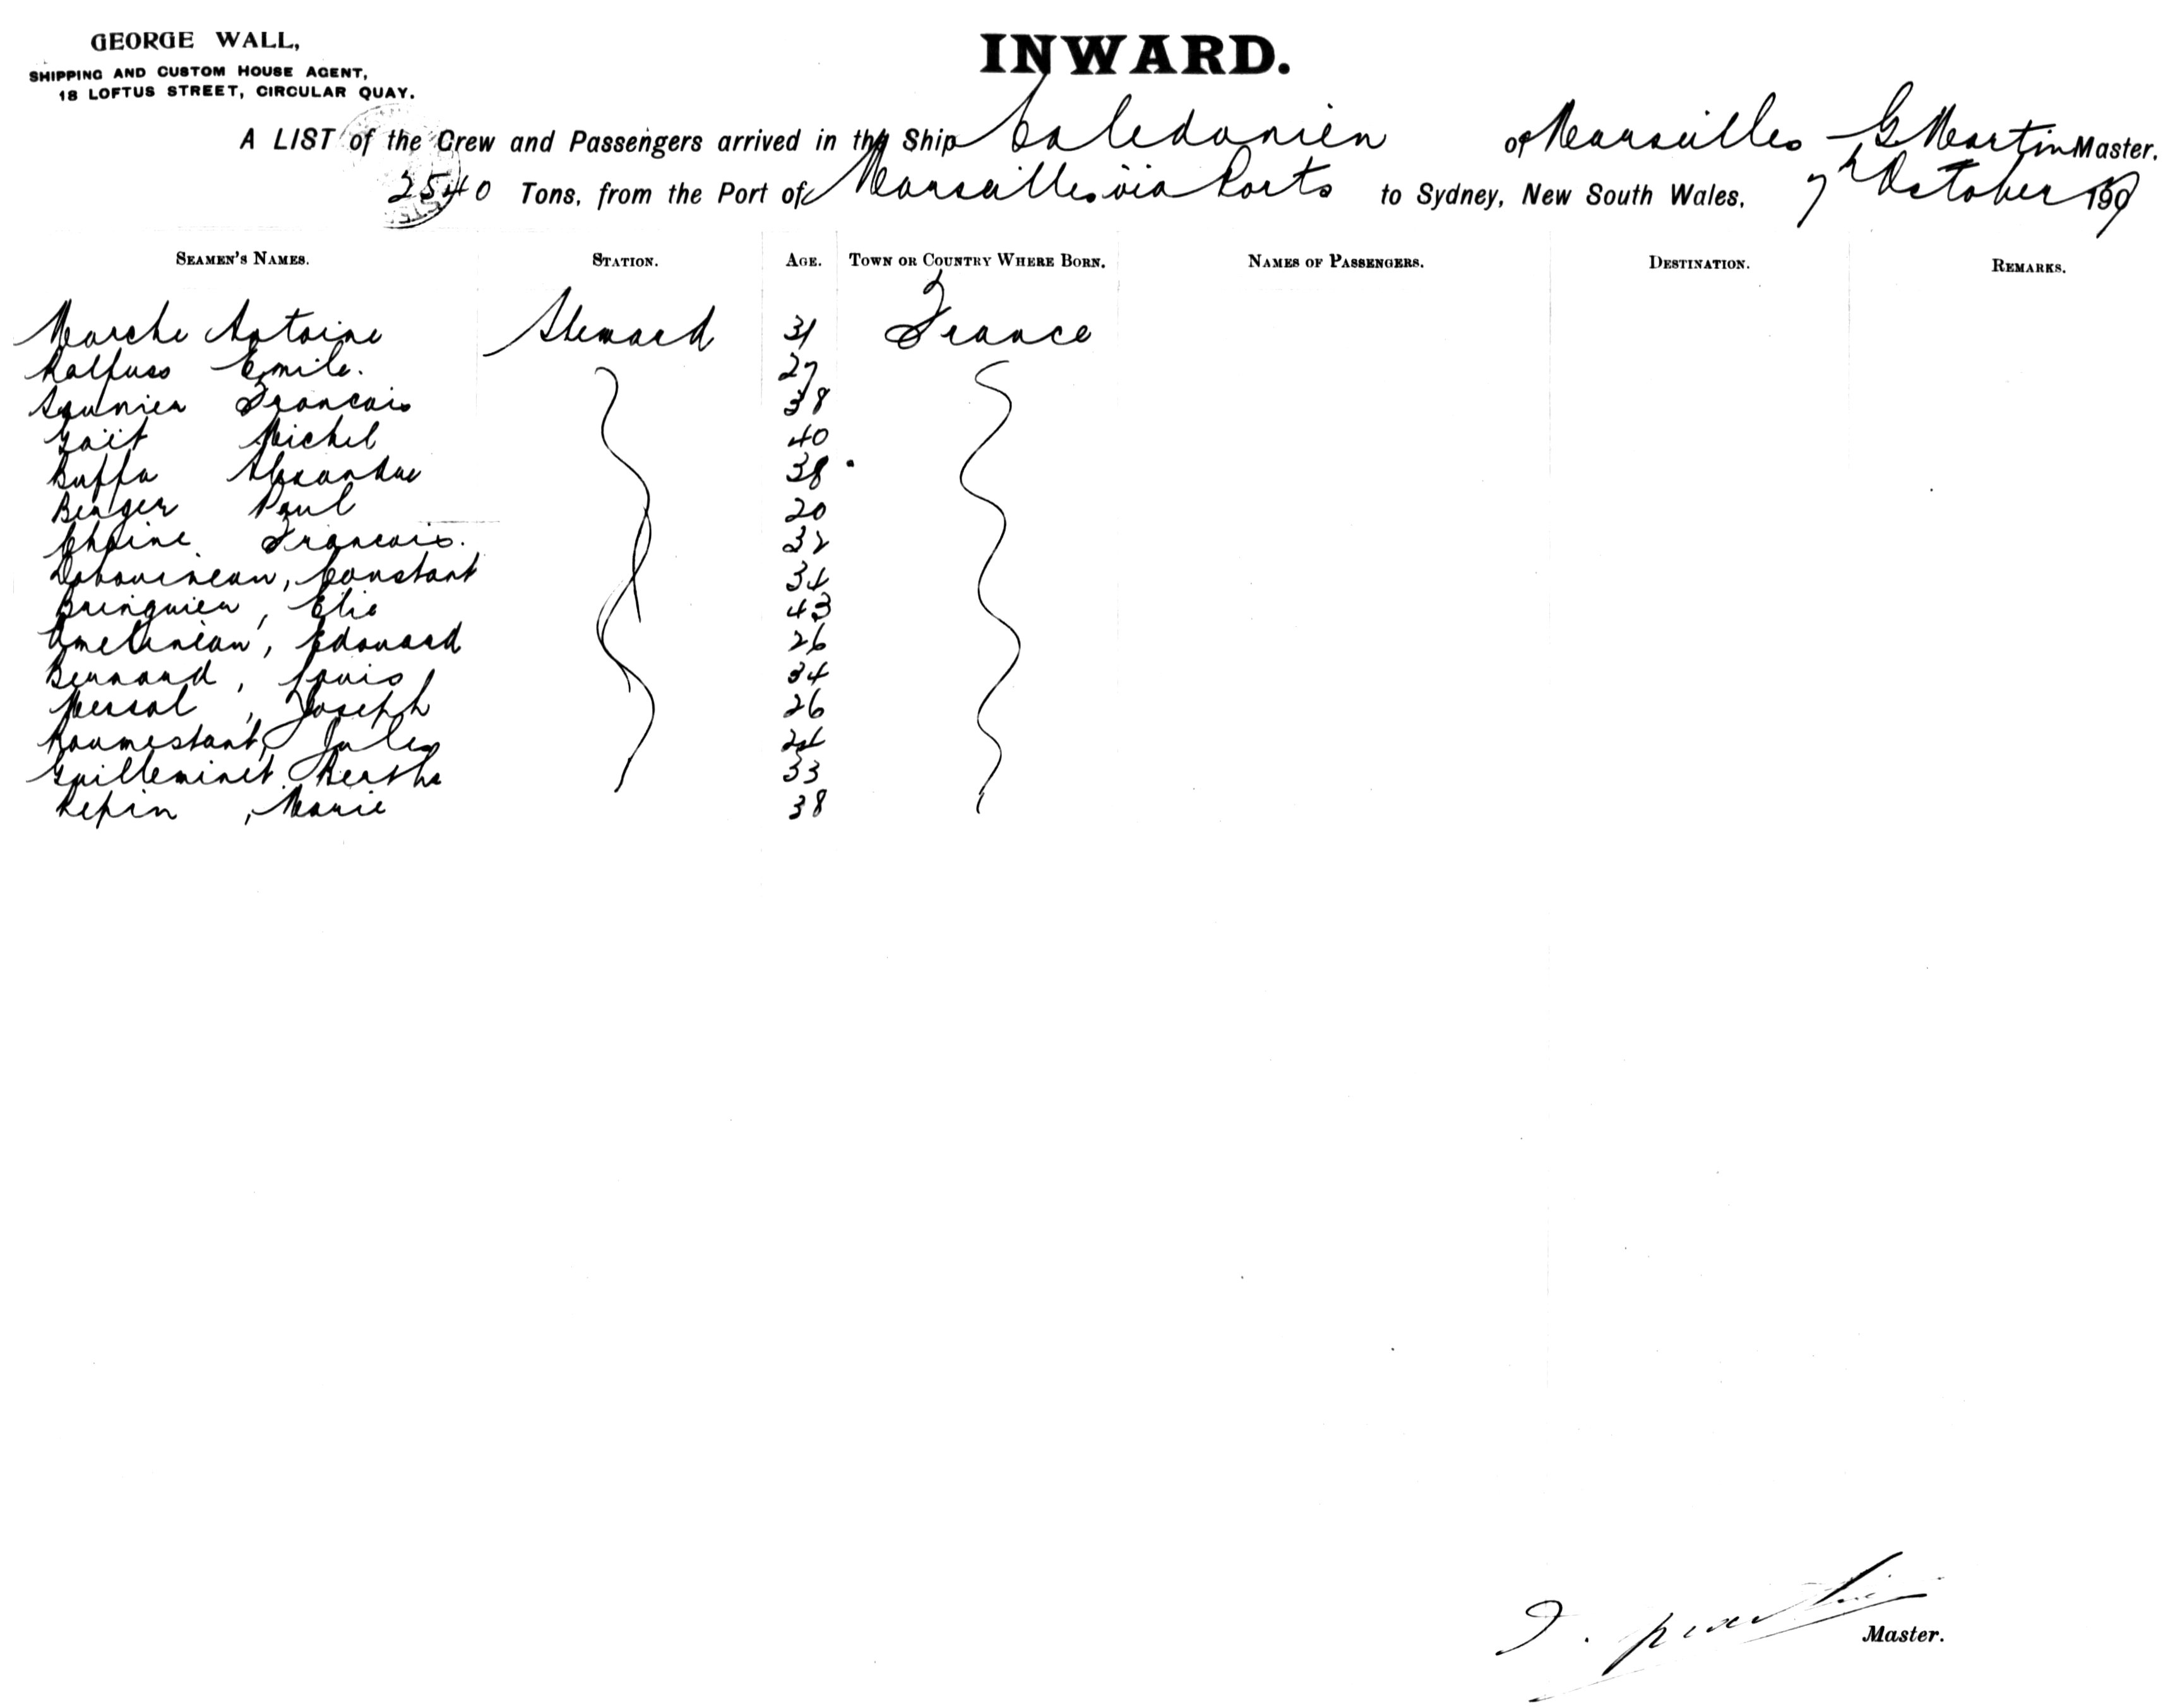 GEORGE WALL,
SHIPPING AND CUSTOM HOUSE AGENT,
18 LOFTUS STREET, CIRCULAR QUAY.
INWARD.
A LIST of the Crew and Passengers arrived in the Ship Caledonien of Marseilles G Martin Master.
2540 Tons, from the Port of Marseilles via Ports to Sydney, New South Wales, 7th October 1907
SEAMEN'S NAMES. STATION. AGE. TOWN OR COUNTRY WHERE BORN. NAMES OF PASSENGERS. DESTINATION. REMARKS.
Marche Antoine Steward 31 France
Kalfuss Emile. 27
Saunier Francois 38
Gait Michel 40
Buffa Alexandre 38
Berger Paul 20
Chaine Francois. 32
Constant 34
Bringuier, Elie 43
Amelineau, Edouard 26
Bernard, Louis 34
Messal, Joseph 26
Roumestant, Jules 24
Guilleminet Berthe 33
Repin, Marie 38
Master.